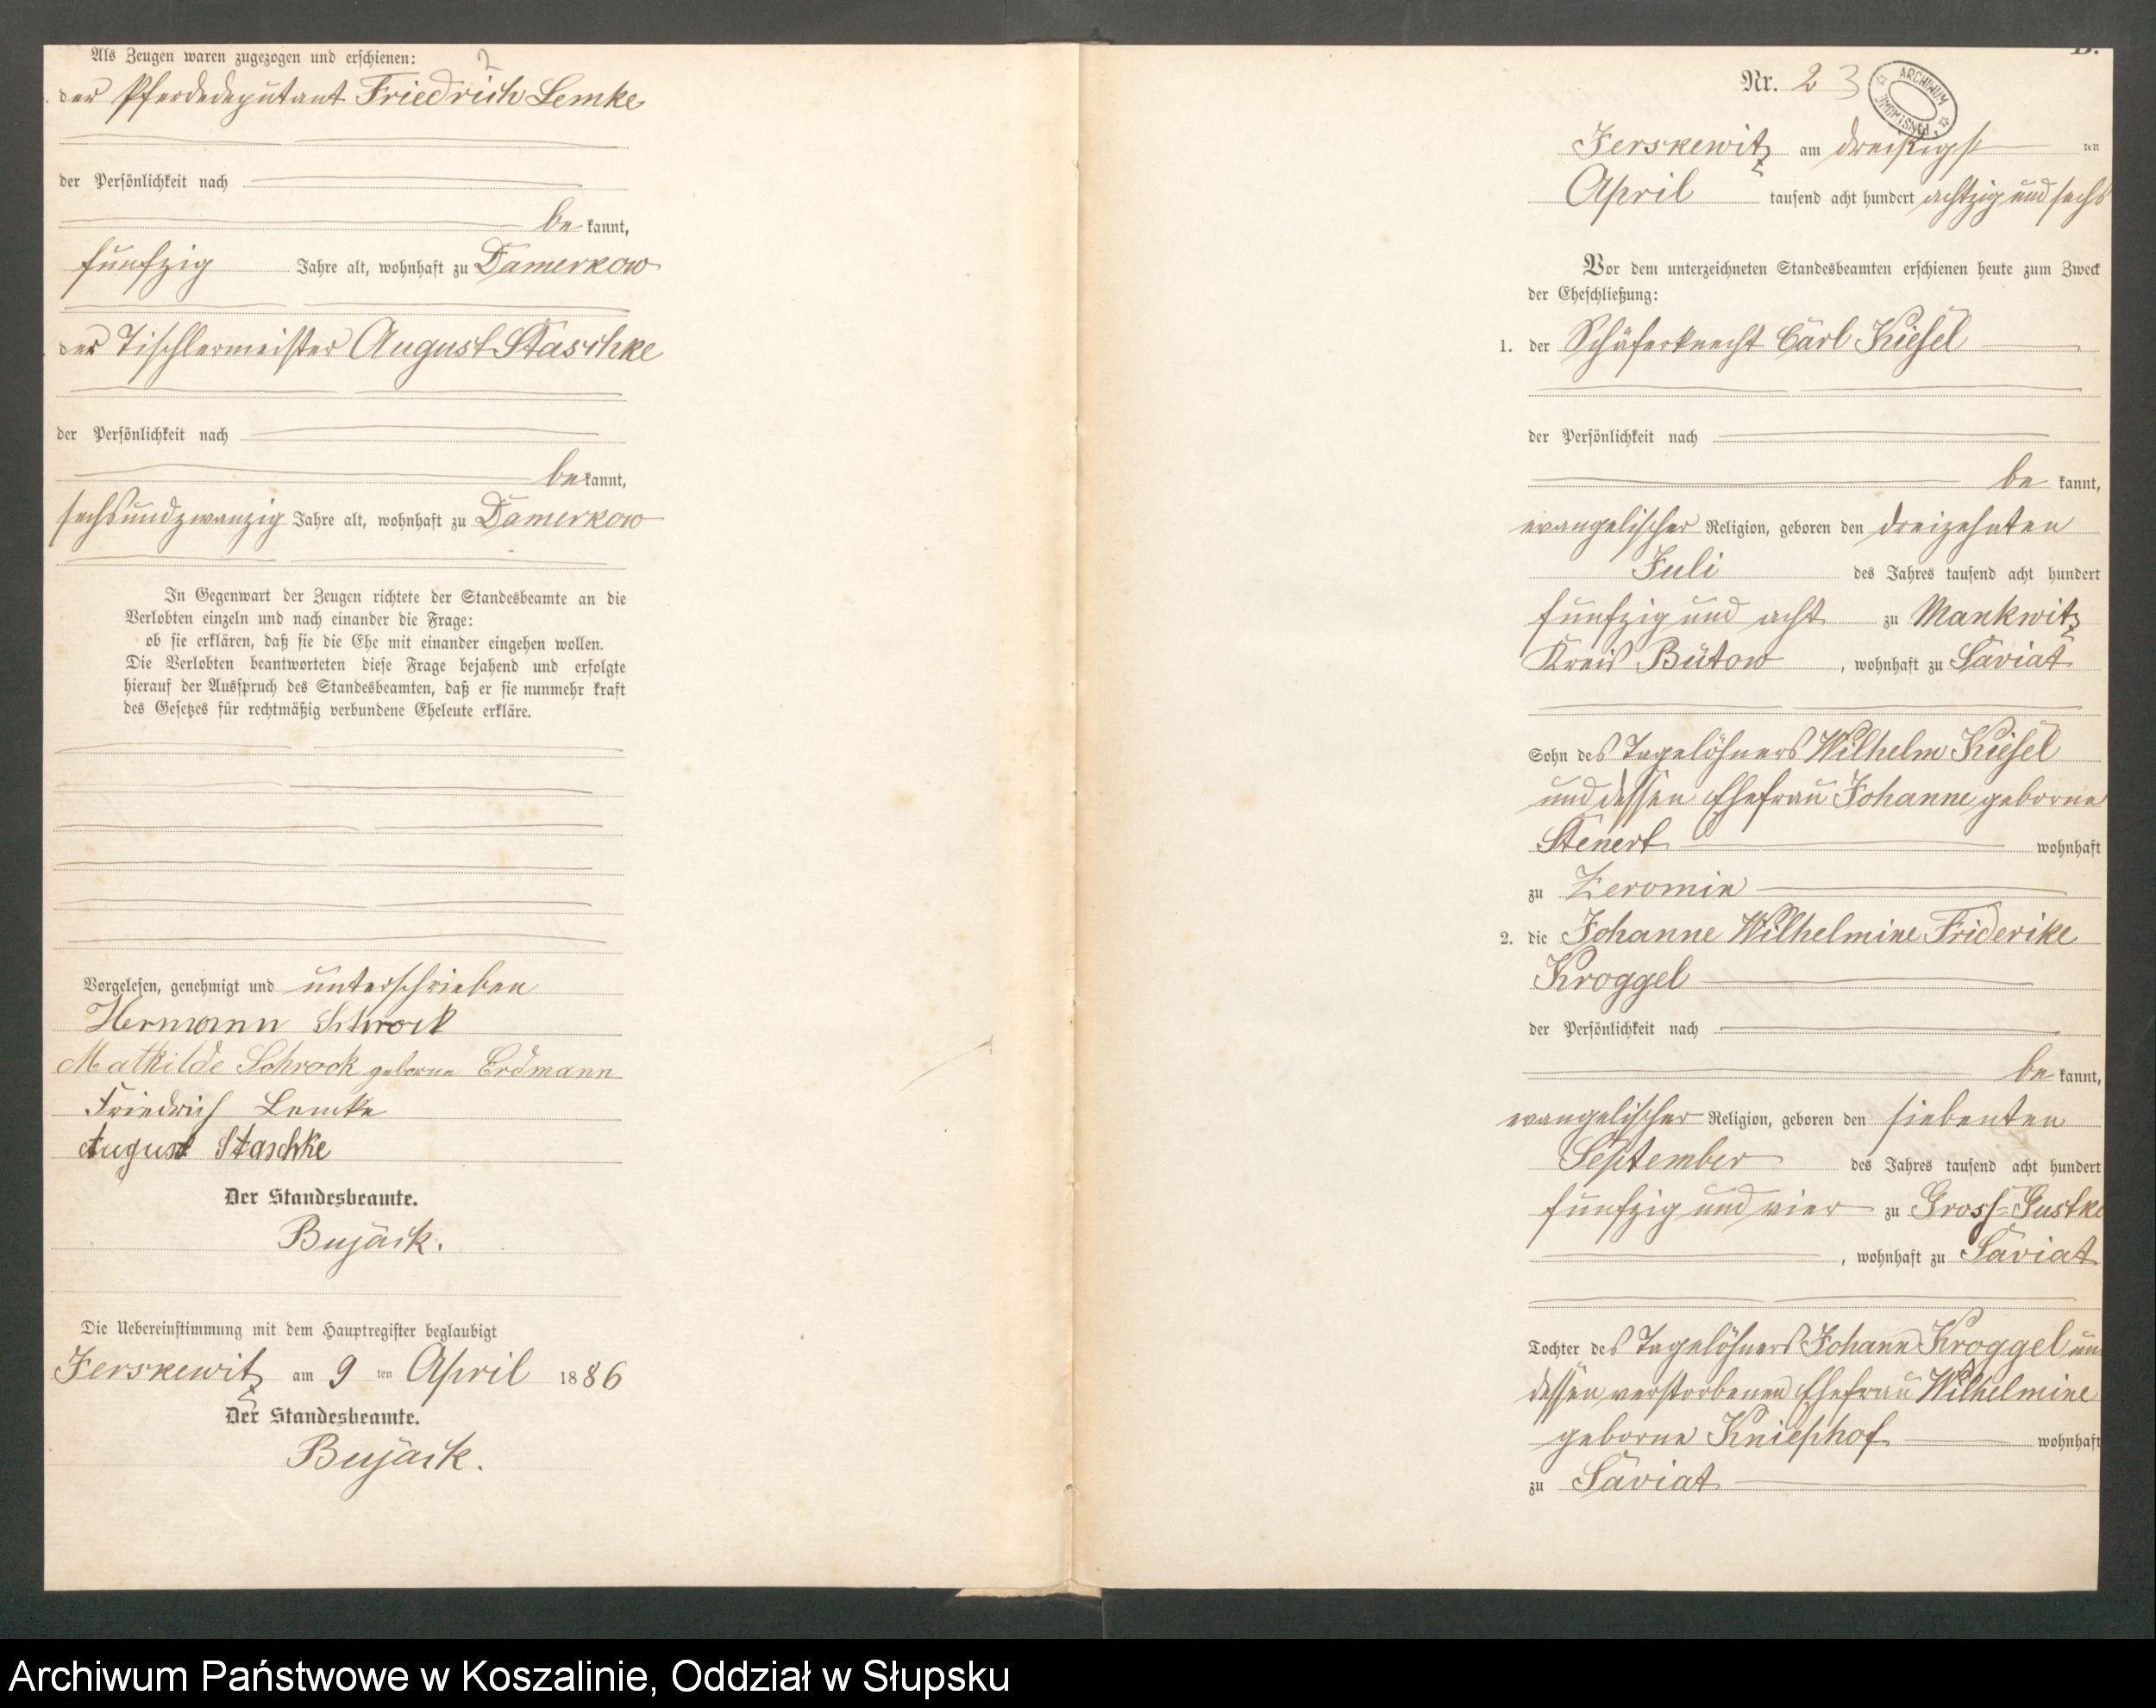 Als Zeugen waren zugezogen und erschienen:
2
der Pferdedeputant Friedrich Lemke
der Persönlichkeit nach
be kannt,
fünfzig Jahre alt, wohnhaft zu Damerkow
der Tischlermeister August Staschke
der Persönlichkeit nach
be kannt,
sechsundzwanzig Jahre alt, wohnhaft zu Damerkow
In Gegenwart der Zeugen richtete der Standesbeamte an die
Verlobten einzeln und nach einander die Frage:
ob sie erklären, daß sie die Ehe mit einander eingehen wollen.
Die Verlobten beantworteten diese Frage bejahend und erfolgte
hierauf der Ausspruch des Standesbeamten, daß er sie nunmehr kraft
des Gesetzes für rechtmäßig verbundene Eheleute erkläre.
Vorgelesen, genehmigt und unterschrieben
Hermann Schrock
Mathilde Schrock geborne Erdmann
Friedrich Lemke
August Staschke
Der Standesbeamte.
Bujack.
Die Uebereinstimmung mit dem Hauptregister beglaubigt
Jerskewitz am 9 ten April 1886
Der Standesbeamte.
Bujack.
B.
Nr. 2 3
ARCHIWUM
Jerskewitz am dreißigst ten
April tausend acht hundert achtzig und sechs
Vor dem unterzeichneten Standesbeamten erschienen heute zum Zweck
der Eheschließung:
1. der Schäferknecht Carl Kiesel
der Persönlichkeit nach
be kannt,
evangelischer Religion, geboren den dreizehnten
Juli des Jahres tausend acht hundert
fünfzig und acht zu Mankwitz
Kreis Bütow, wohnhaft zu Saviat
Sohn des Tagelöhners Wilhelm Kiesel
und dessen Ehefrau Johanne geborne
Stenert wohnhaft
zu Zeromin
2. die Johanne Wilhelmine Friderike
Kroggel
der Persönlichkeit nach
be kannt,
evangelischer Religion, geboren den siebenten
September des Jahres tausend acht hundert
fünfzig und vier zu Gross-Gustke
, wohnhaft zu Saviat
Tochter des Tagelöhners Johann Kroggel un
dessen verstorbenen Ehefrau Wilhelmine
geborne Kniephof wohnhaft
zu Saviat
Archiwum Państwowe w Koszalinie, Oddział w Słupsku